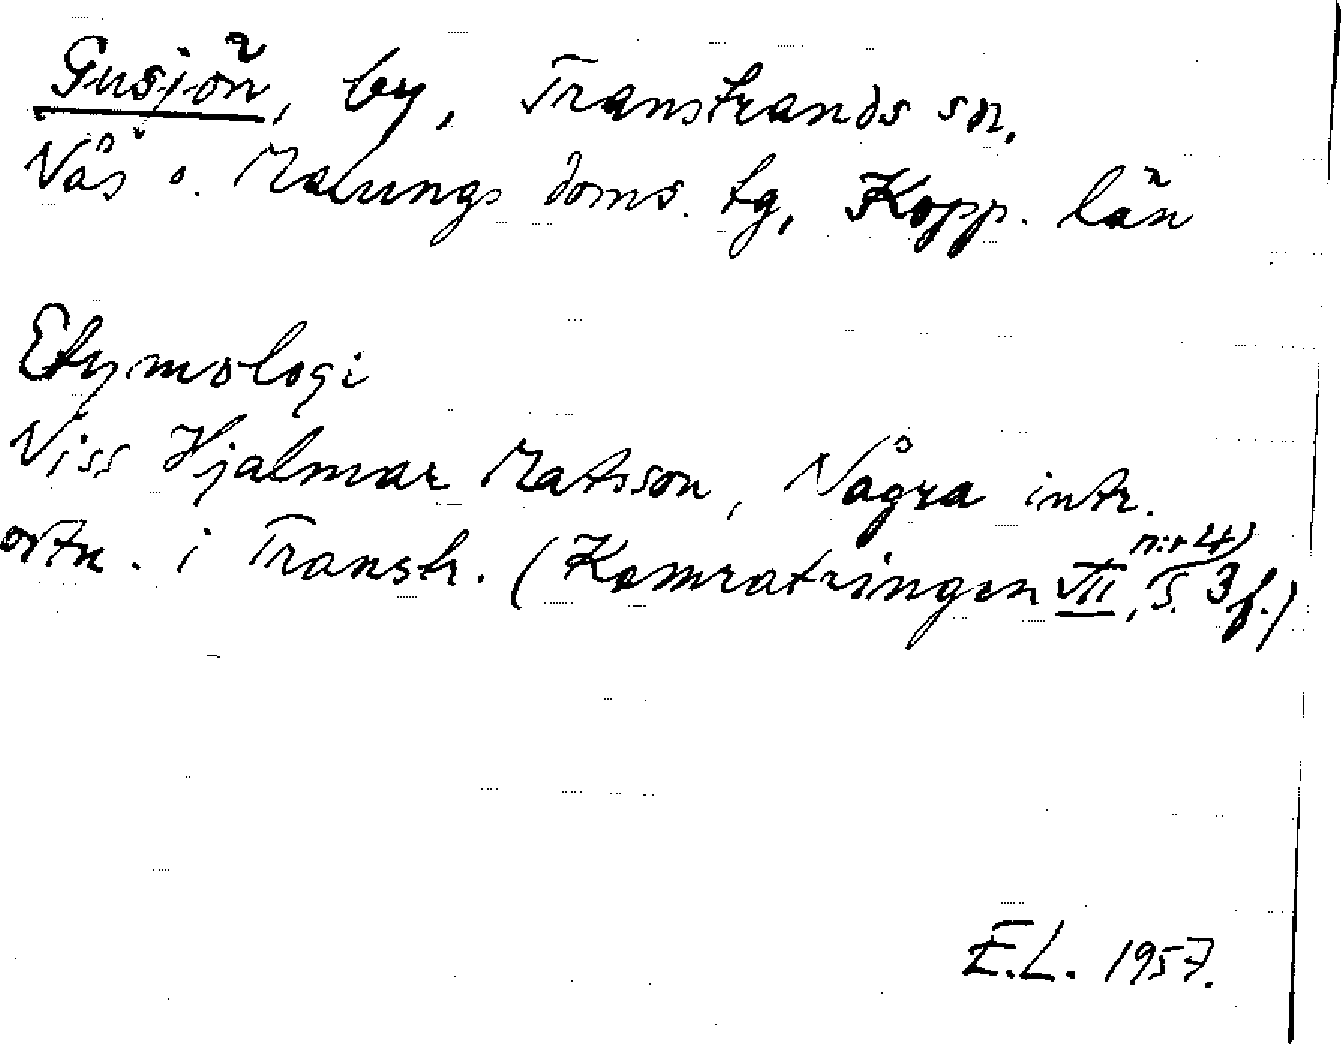 Gusjön, by, Transtrands sn,
Nås o. Malungs doms. tg, Kopp. län
Etymologi
Viss Hjalmar Matsson, Några intr.
ortn. i Transtr. (Kamratringen VII, nir 4, s. 3 f.)
E.L. 1957.